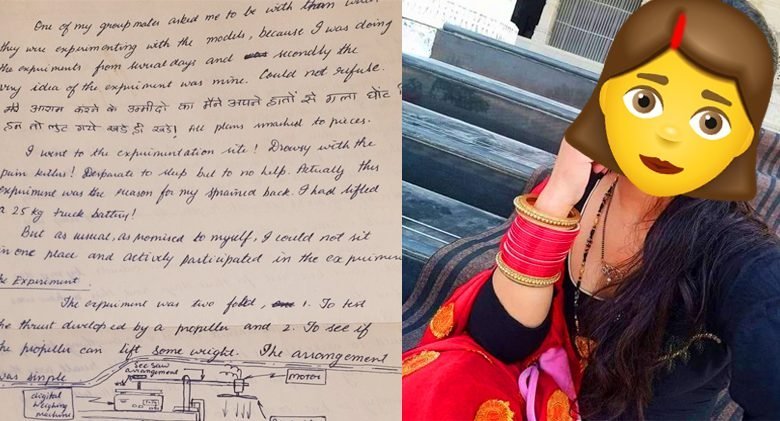 One of my groupmates asked me to be with them
they were experimenting with the models, because I was doing
the experiments from several days and secondly the
very idea of the experiment was mine. Could not refuse.
मेरे आराम करने के उम्मीदो का मैंने अपने हातों से गला घोंट
हम तो लुट गये खडे ही खडे! All plans smashed to pieces.
I went to the experimentation site! Drowsy with the
pain killers! Desparate to sleep but to no help. Actually this
experiment was the reason for my sprained back. I had lifted
a 25 kg truck battery!
But as usual, as promised to myself, I could not sit
in one place and actively participated in the experiment
the Experiment
The experiment was two fold, 1. To test
the thrust developed by a propeller and 2. To see if
the propeller can lift some weight. The arrangement
was simple
See saw
arrangement
MOTOR
digital
Weighing
machine